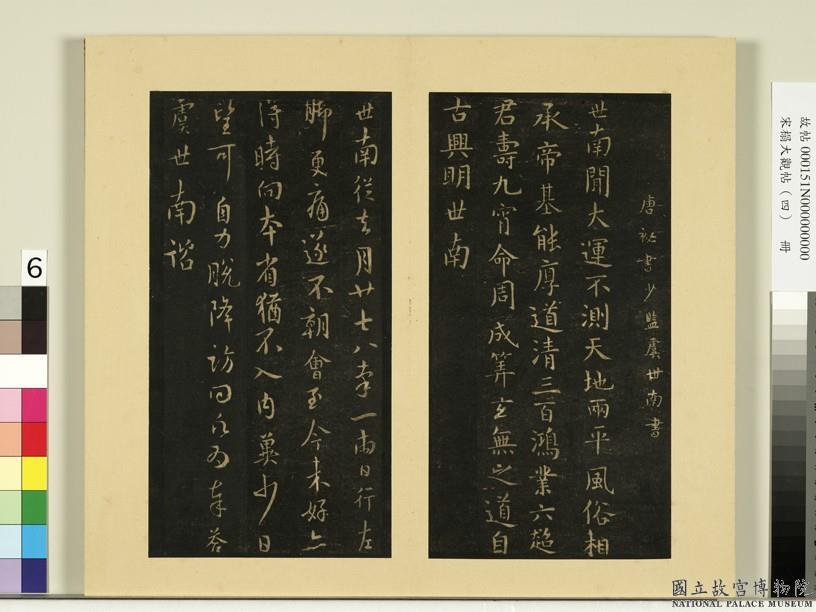 唐秘書少監虞世南書
世南聞大運不測天地兩平風俗相
承帝基能厚道清三百鴻業六超
君壽九霄命周成筭玄無之道自
古興明世南
世南從去月廿七八率一兩日行左
脚更痛遂不朝會至今未好亦
得時向本省猶不入內冀少日
望可自力脫降訪問願為奉答
虞世南諮
6
故帖000151N000000000
宋搨大觀帖（四） 冊
國立故宮博物院
NATIONAL PALACE MUSEUM